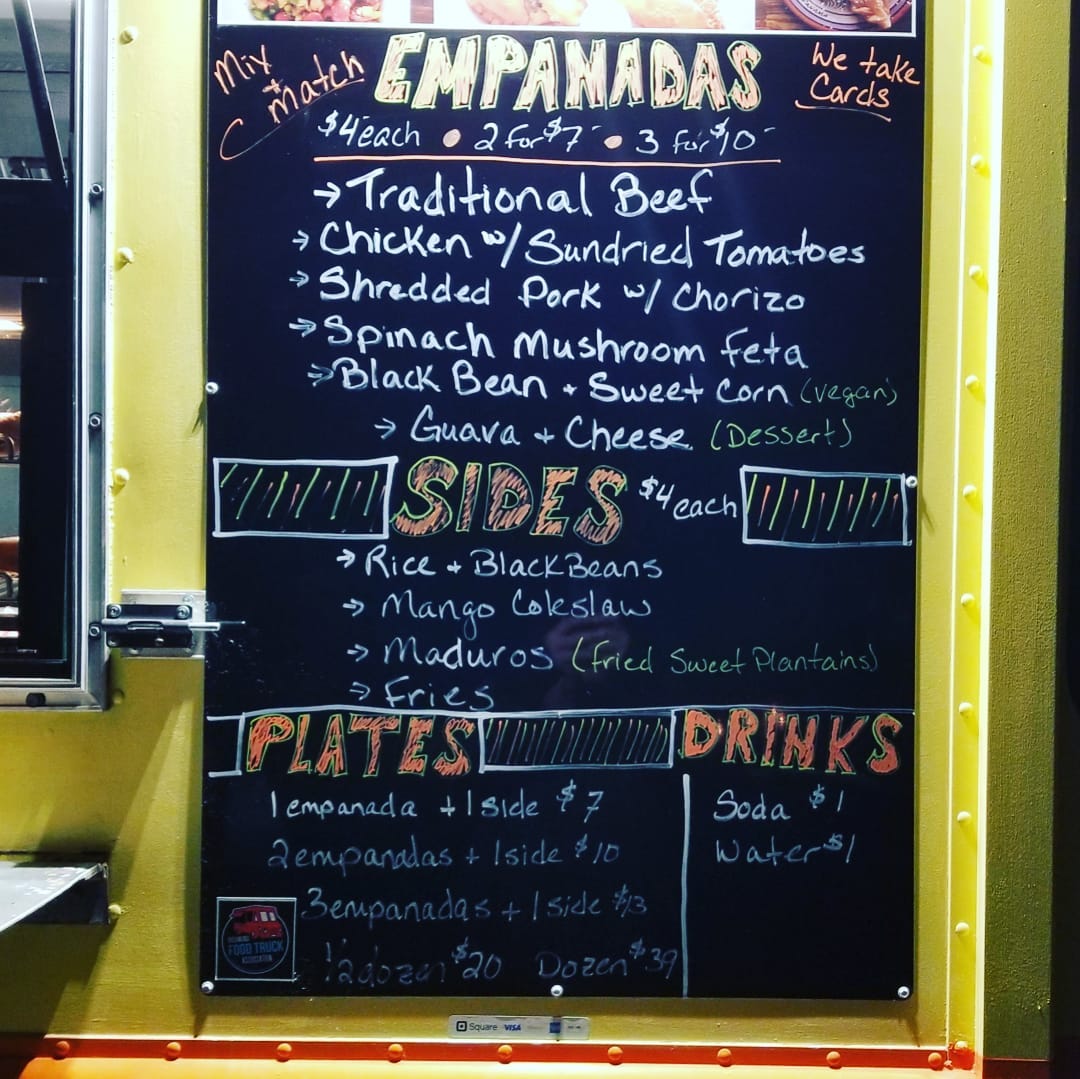 Mix + Match
EMPANADAS
We take Cards
$4 each • 2 for $7 • 3 for $10
→ Traditional Beef
→ Chicken w/ Sundried Tomatoes
→ Shredded Pork w/ Chorizo
→ Spinach Mushroom Feta
→ Black Bean + Sweet Corn (vegan)
→ Guava + Cheese (Dessert)
SIDES $4 each
→ Rice + Black Beans
→ Mango Coleslaw
→ Maduros (Fried Sweet Plantains)
→ Fries
PLATES
1 empanada + 1 side $7
2 empanadas + 1 side $10
3 empanadas + 1 side $13
1/2 dozen $20 Dozen $39
DRINKS
Soda $1
Water $1
FOOD TRUCK
ASSOCIATION
Square VISA